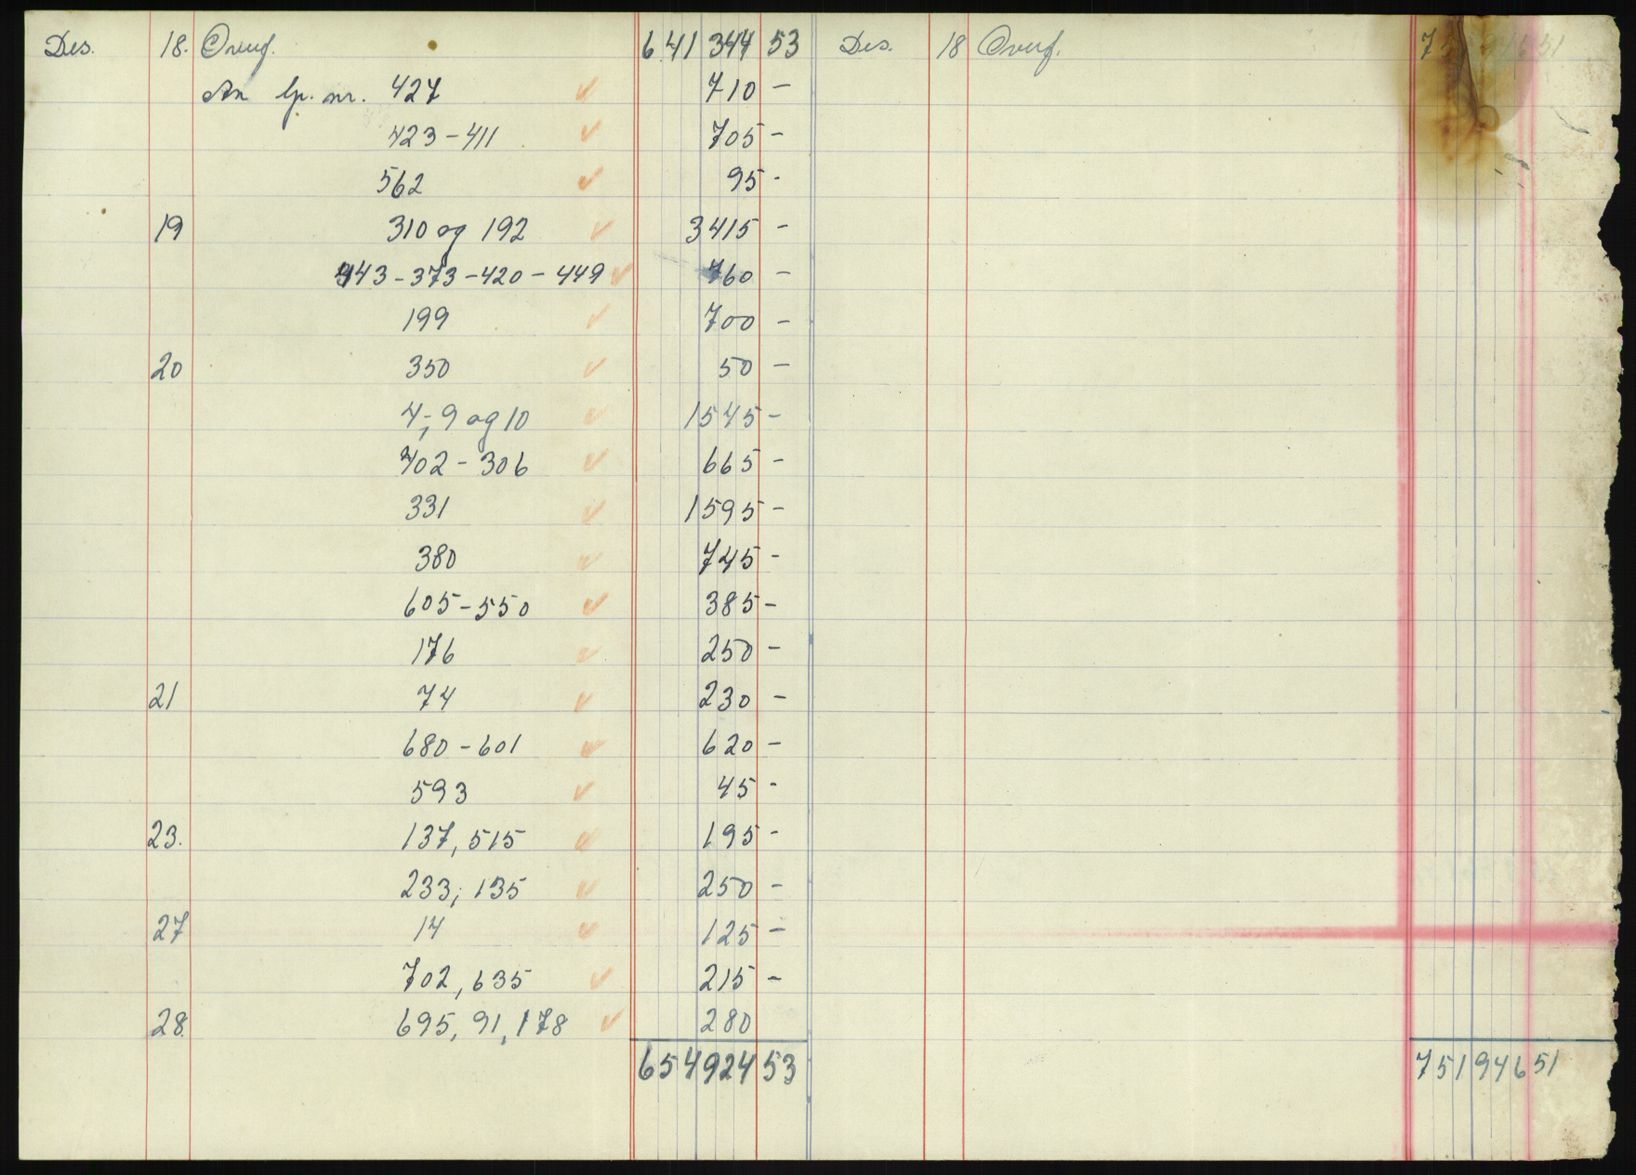 Des. 18. Overf. 641 344 53
An lp. nr. 427 710 -
423 - 411 705 -
562 95 -
19 310 og 192 3415 -
443 - 373 - 420 - 449 760 -
199 700 -
20 350 50 -
4,- 9 og 10 1545 -
402 - 306 665 -
331 1595 -
380 745 -
605 - 550 385 -
176 250 -
21 74 230 -
680 - 601 620 -
593 45 -
23. 137, 515 195 -
233, 135 250 -
27 14 125 -
702, 635 215 -
28. 695, 91, 178 280
654924 53
Des. 18 Overf. 751946 51
751946 51